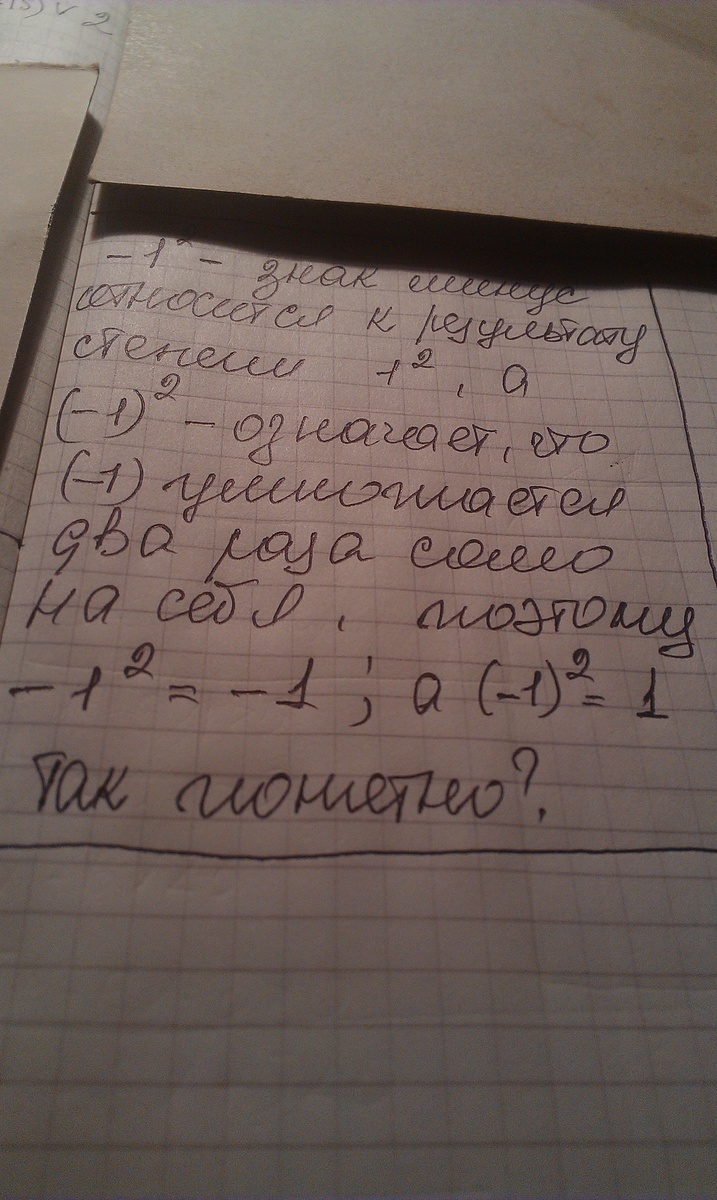 -1² - знак минус
относится к результату
степени 1², а
(-1)² - означает, что
(-1) умножается
два раза само
на себя, поэтому
-1² = -1; а (-1)² = 1
Так понятно?